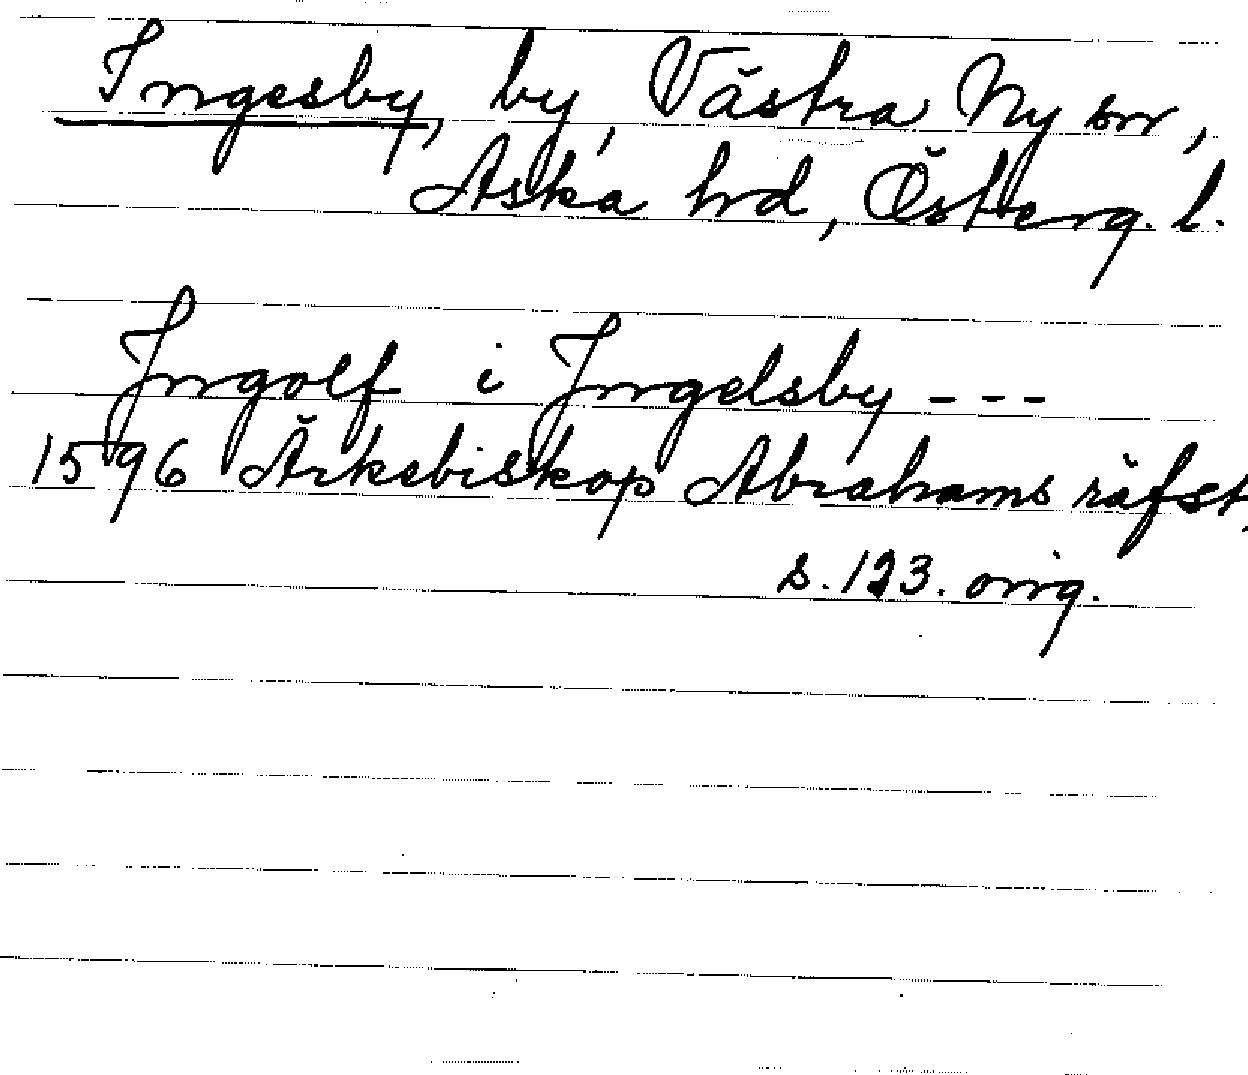 Ingesby, by, Västra Ny sn,
Aska hd, Österg. l.
Ingolf i Ingelsby ---
1596 Ärkebiskop Abrahams räfst,
s. 123. orig.